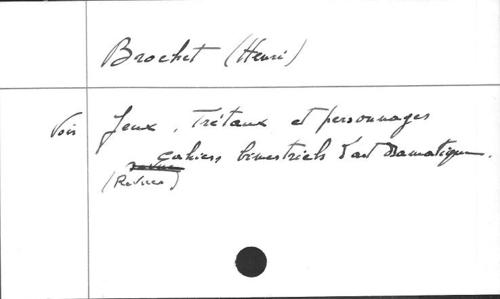 Brochet (Henri)
Voir Jeux, Tréteaux et personnages
cahiers bimestriels d'art Dramatique.
(Revues)